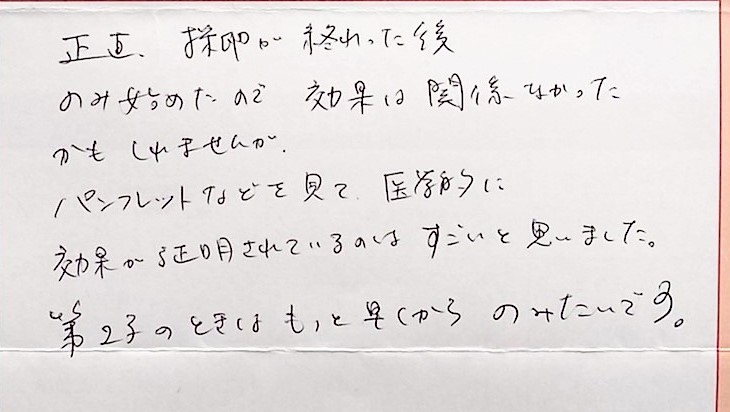 正直、採卵が終わった後
のみ始めたので 効果は関係なかった
かもしれませんが、
パンフレットなどを見て、医学的に
効果が証明されているのはすごいと思いました。
第2子のときはもっと早くから のみたいです。